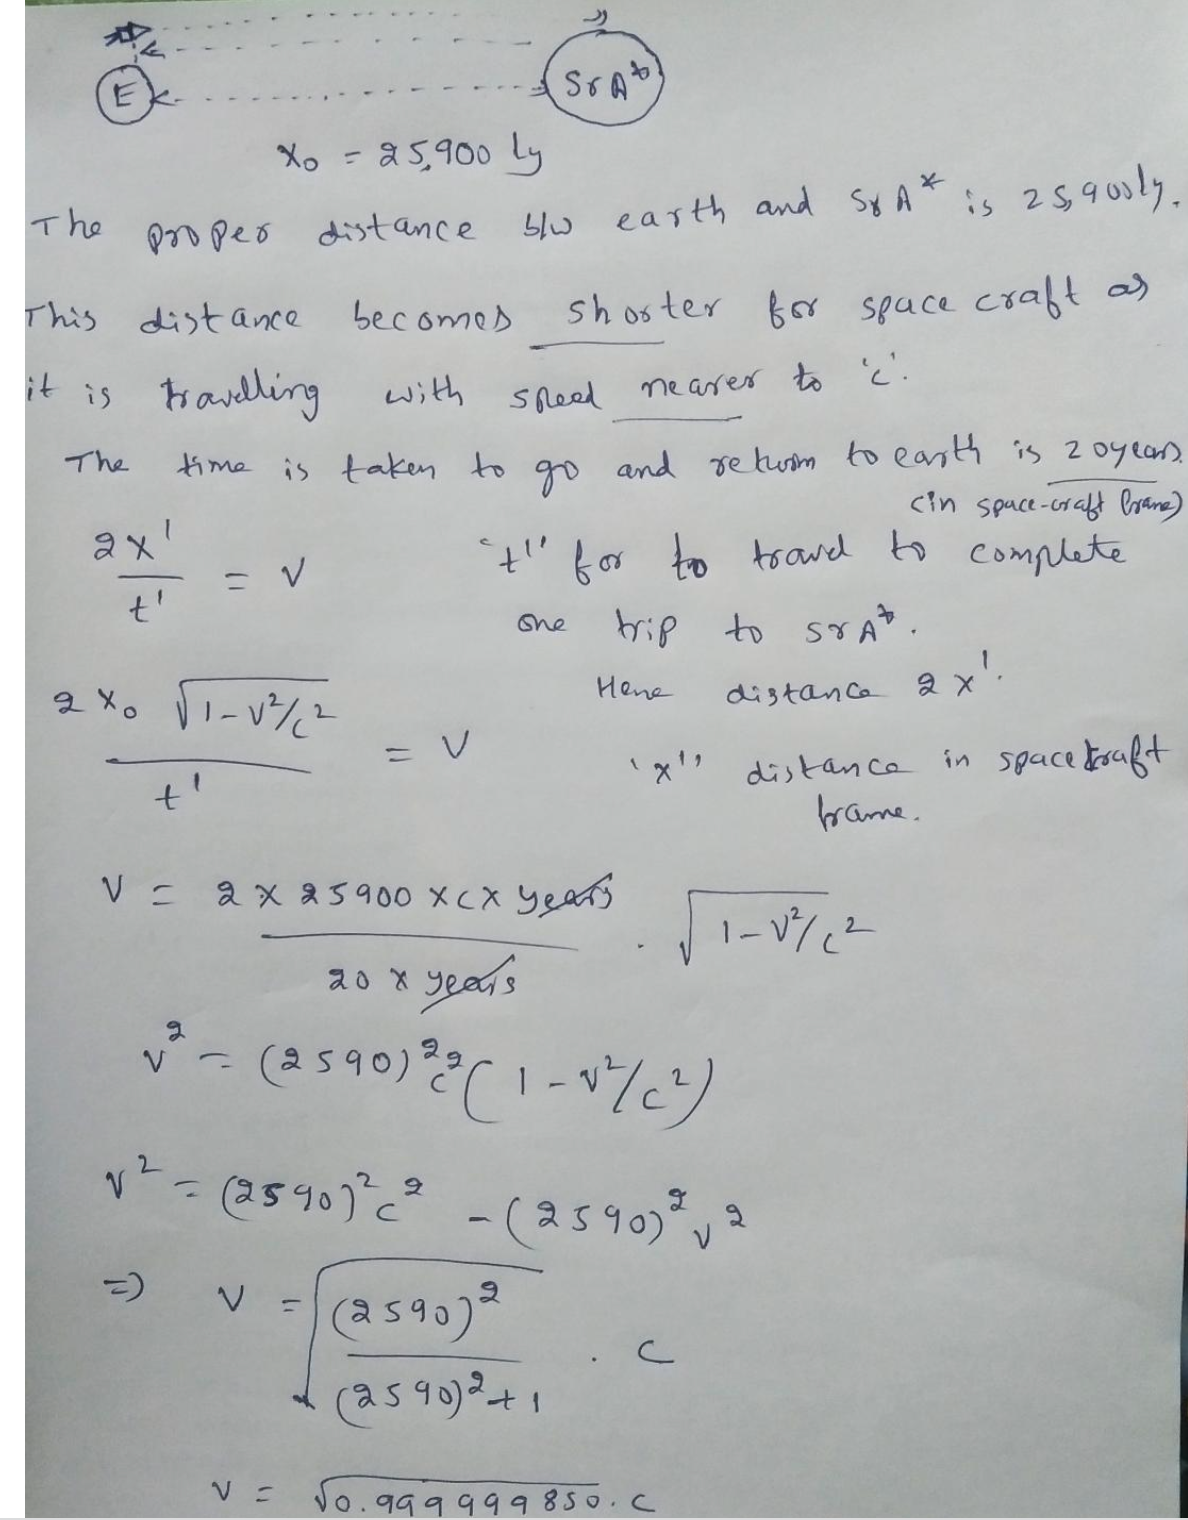 E
Sr A*
x₀ = 25,900 Ly
The proper distance b/w earth and Sr A* is 25,900 ly.
This distance becomes shorter for space craft as
it is travelling with speed nearer to 'c'.
The time is taken to go and return to earth is 20 years.
(in space-craft frame)
2x' / t' = v
't'' for to travel to complete
one trip to Sr A*.
Here distance 2x'.
2x₀ √(1-v²/c²) / t' = v
'x'' distance in spacecraft
frame.
v = 2 × 25900 × c × years / 20 × years . √(1-v²/c²)
v² = (2590)² c² (1 - v²/c²)
v² = (2590)² c² - (2590)² v²
=) v = √((2590)² / (2590)² + 1) . c
v = √0.999999850 . c